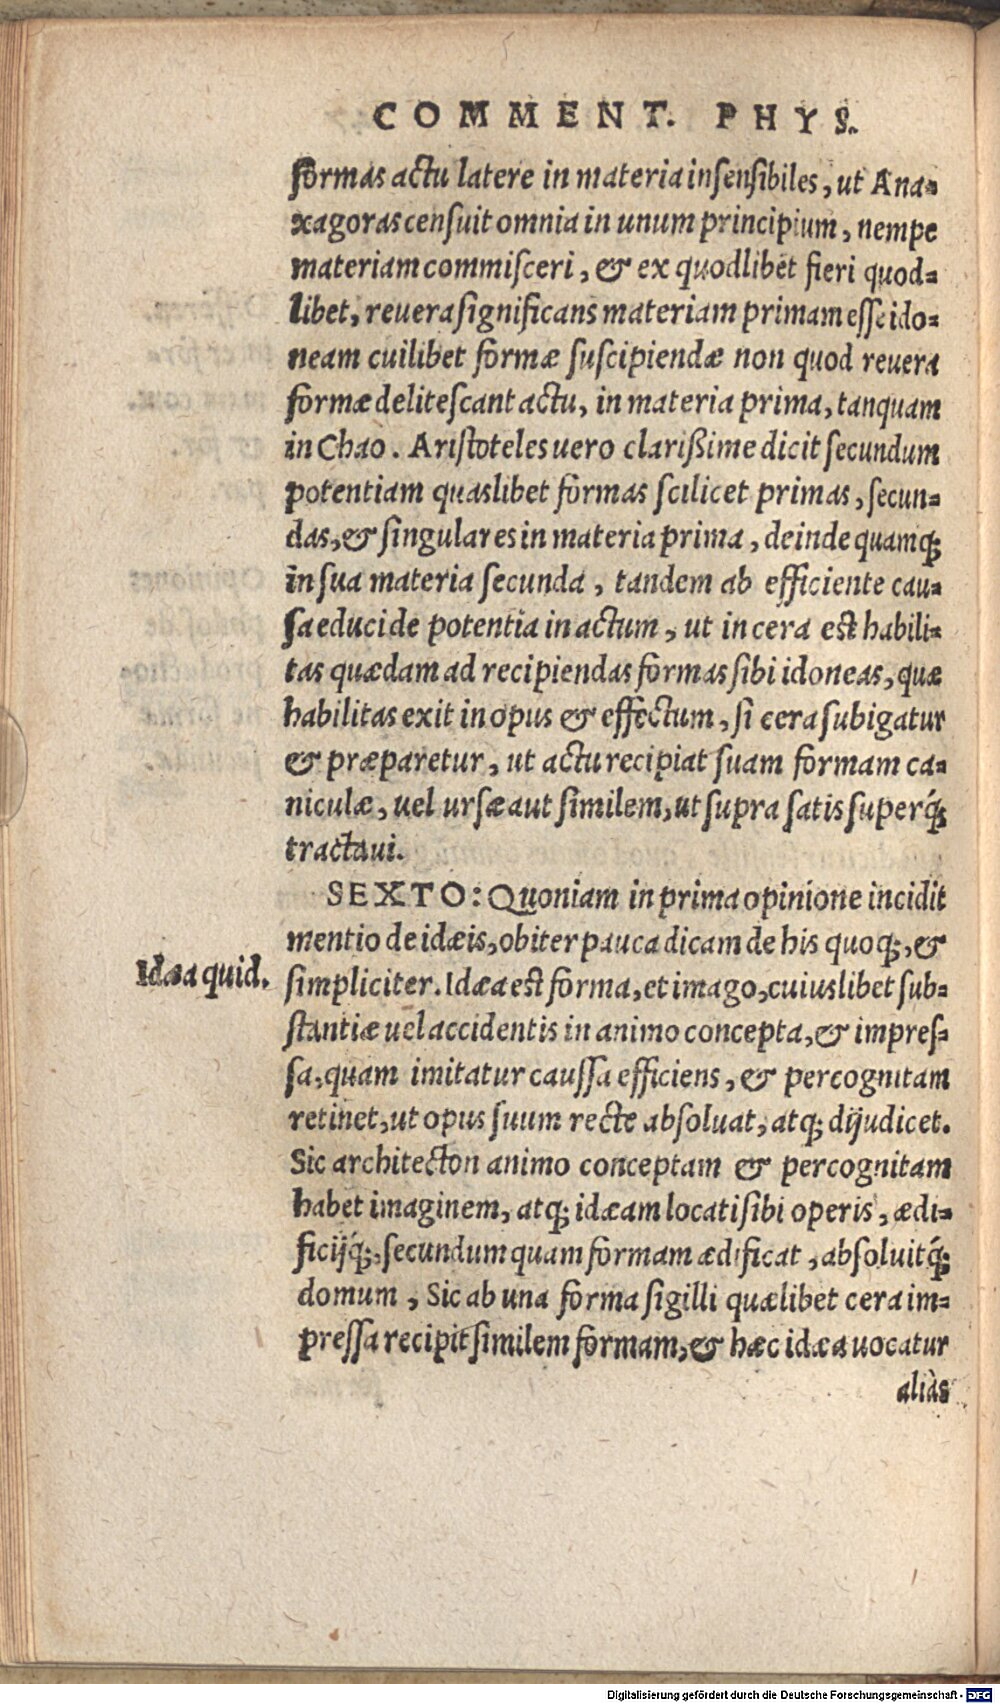 COMMENT. PHYS.
formas actu latere in materia insensibiles, ut Ana-
xagoras censuit omnia in unum principium, nempe
materiam commisceri, & ex quodlibet fieri quod-
libet, reuera significans materiam primam esse ido-
neam cuilibet formæ suscipiendæ non quod reuera
formæ delitescant actu, in materia prima, tanquam
in Chao. Aristoteles uero clarißime dicit secundum
potentiam quaslibet formas scilicet primas, secun-
das, & singulares in materia prima, deinde quamq;
in sua materia secunda, tandem ab efficiente cau-
sa educi de potentia in actum, ut in cera est habili-
tas quædam ad recipiendas formas sibi idoneas, quæ
habilitas exit in opus & effectum, si cera subigatur
& præparetur, ut actu recipiat suam formam ca-
niculæ, uel ursæ aut similem, ut supra satis superq́;
tractaui.
SEXTO: Quoniam in prima opinione incidit
mentio de idæis, obiter pauca dicam de his quoq;, &
Idæa quid.
simpliciter. Idæa est forma, et imago, cuiuslibet sub-
stantiæ uel accidentis in animo concepta, & impres-
sa, quam imitatur caussa efficiens, & percognitam
retinet, ut opus suum recte absoluat, atq; dijudicet.
Sic architecton animo conceptam & percognitam
habet imaginem, atq; idæam locati sibi operis, ædi-
ficijq́;, secundum quam formam ædificat, absoluitq́;
domum, Sic ab una forma sigilli quælibet cera im-
pressa recipit similem formam, & hæc idæa uocatur
aliàs
Digitalisierung gefördert durch die Deutsche Forschungsgemeinschaft - DFG